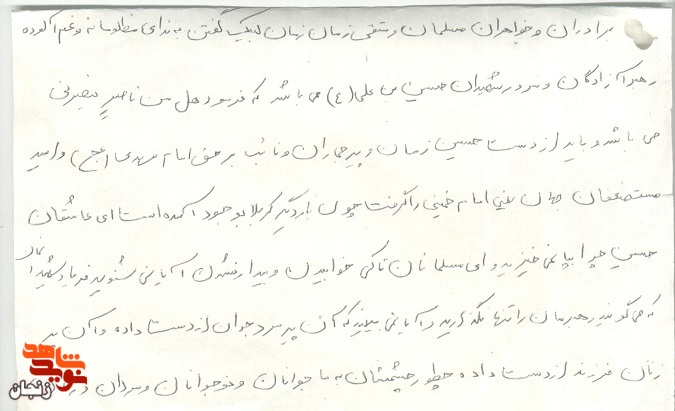 برادران و خواهران مسلمان و متقی زمان زمان لبیک گفتن به ندای مظلومانه و غم آلوده
رهبر آزادگان و سرور شهیدان حسین بن علی (ع) می باشد که فرمود هل من ناصر ینصرنی
می باشد و باید از دست حسین زمان و پیر جماران و نائب برحق امام مهدی (عج) و امید
مستضعفان جهان یعنی امام خمینی را گرفت چون بار دیگر کربلا بوجود آمده است ای عاشقان
حسین چرا بپا نمی خیزید و ای مسلمانان تا کی خوابیدن و بیدار نشدن آیا نمی شنوید فریاد شهیدان
که می گویند رهبرمان را تنها نگذارید و آیا نمی بینید که آن پیر مرد جوان از دست داده و آن پیر
زنان فرزند از دست داده چطور چشمشان به ما جوانان و نوجوانان و مردان و
نوید شاهد
زنجان